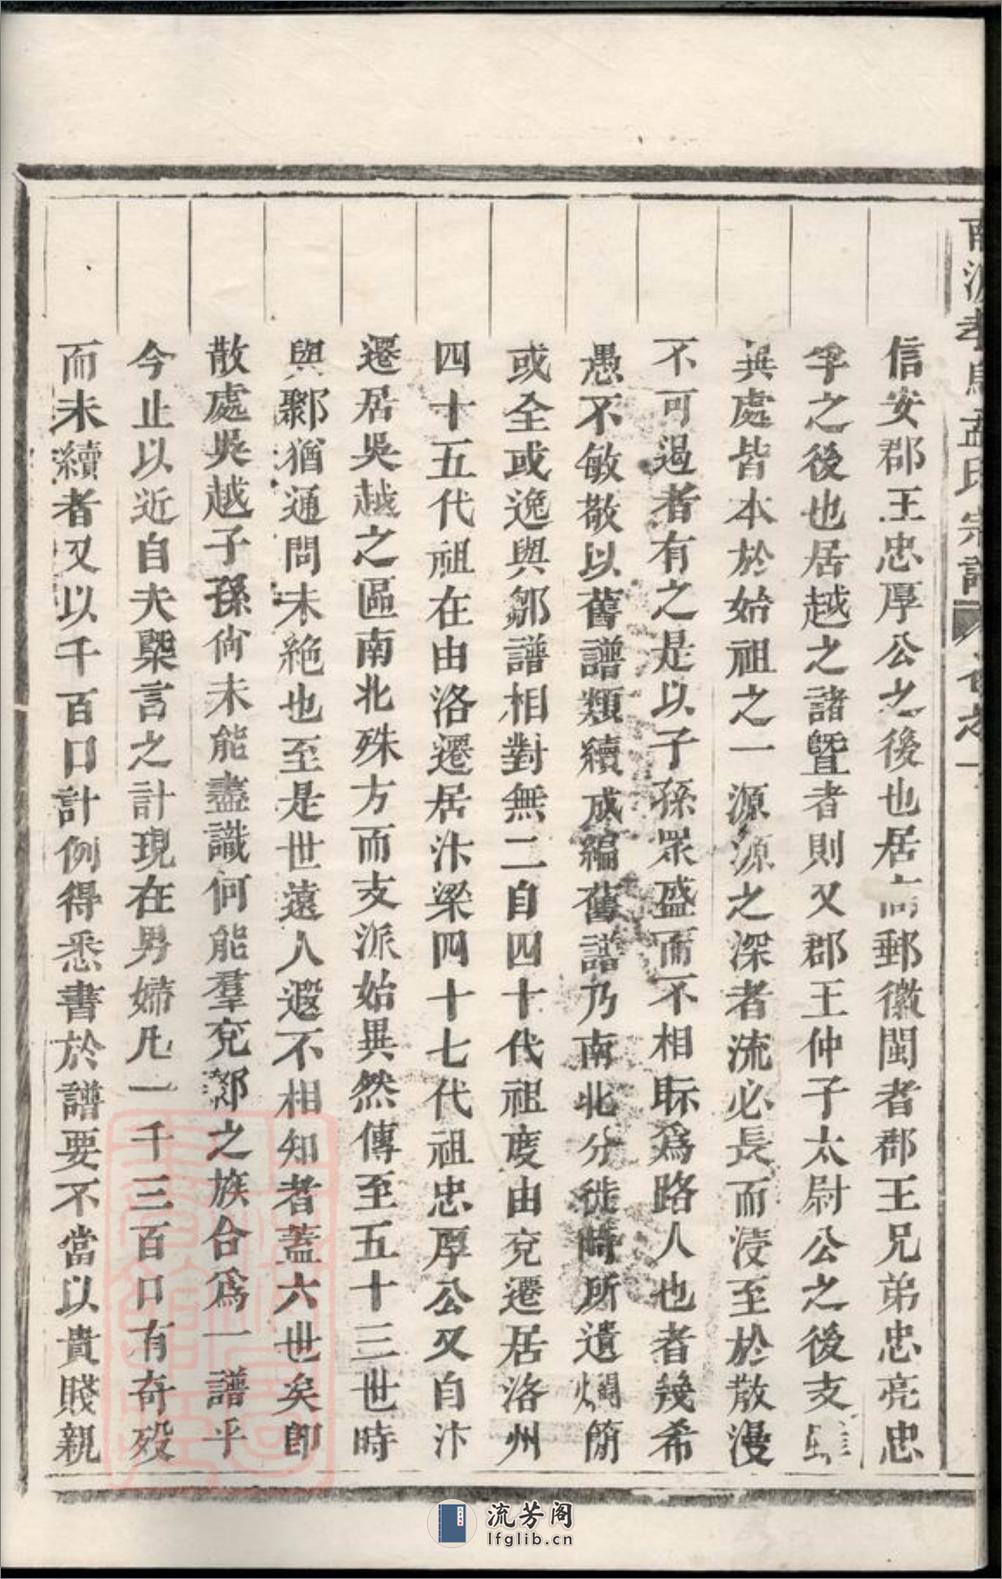 信安郡王忠厚公之後也居高郵徽閩者郡王兄弟忠亮忠
孚之後也居越之諸曁者則又郡王仲子太尉公之後支雖
異處皆本於始祖之一源源之深者流必長而浸至於散漫
不可遏者有之是以子孫眾盛而不相眎爲路人也者幾希
愚不敏敬以舊譜類續成編舊譜乃南北分徙時所遺爛簡
或全或逸與鄒譜相對無二自四十代祖度由兗遷居洛州
四十五代祖在由洛遷居汴梁四十七代祖忠厚公又自汴
遷居吳越之區南北殊方而支派始異然傳至五十三世時
與鄹猶通問未絶也至是世遠人遐不相知者蓋六世矣卽
散處吳越子孫尙未能盡識何能羣兗鄒之族合爲一譜乎
今止以近自夫槼言之計現在男婦凡一千三百口有奇歿
而未續者又以千百口計例得悉書於譜要不當以貴賤親
孟氏宗譜
流芳阁
lfglib.cn